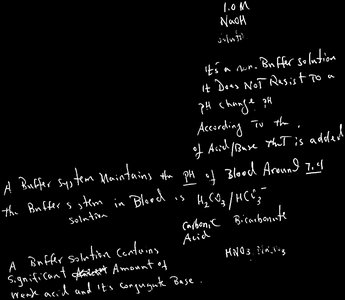 1.0 M
NaOH
It's a non. Buffer solution
It Does NOT Resist To a
pH change. pH
According To the
of Acid/Base that is added
A Buffer system Maintains the pH of Blood Around 7.4
the Buffer system in Blood is H2CO3/HCO3-
solution
Carbonic Bicarbonate
Acid
HNO3
A Buffer solution contains
significant Amount of
weak acid and its conjugate Base.